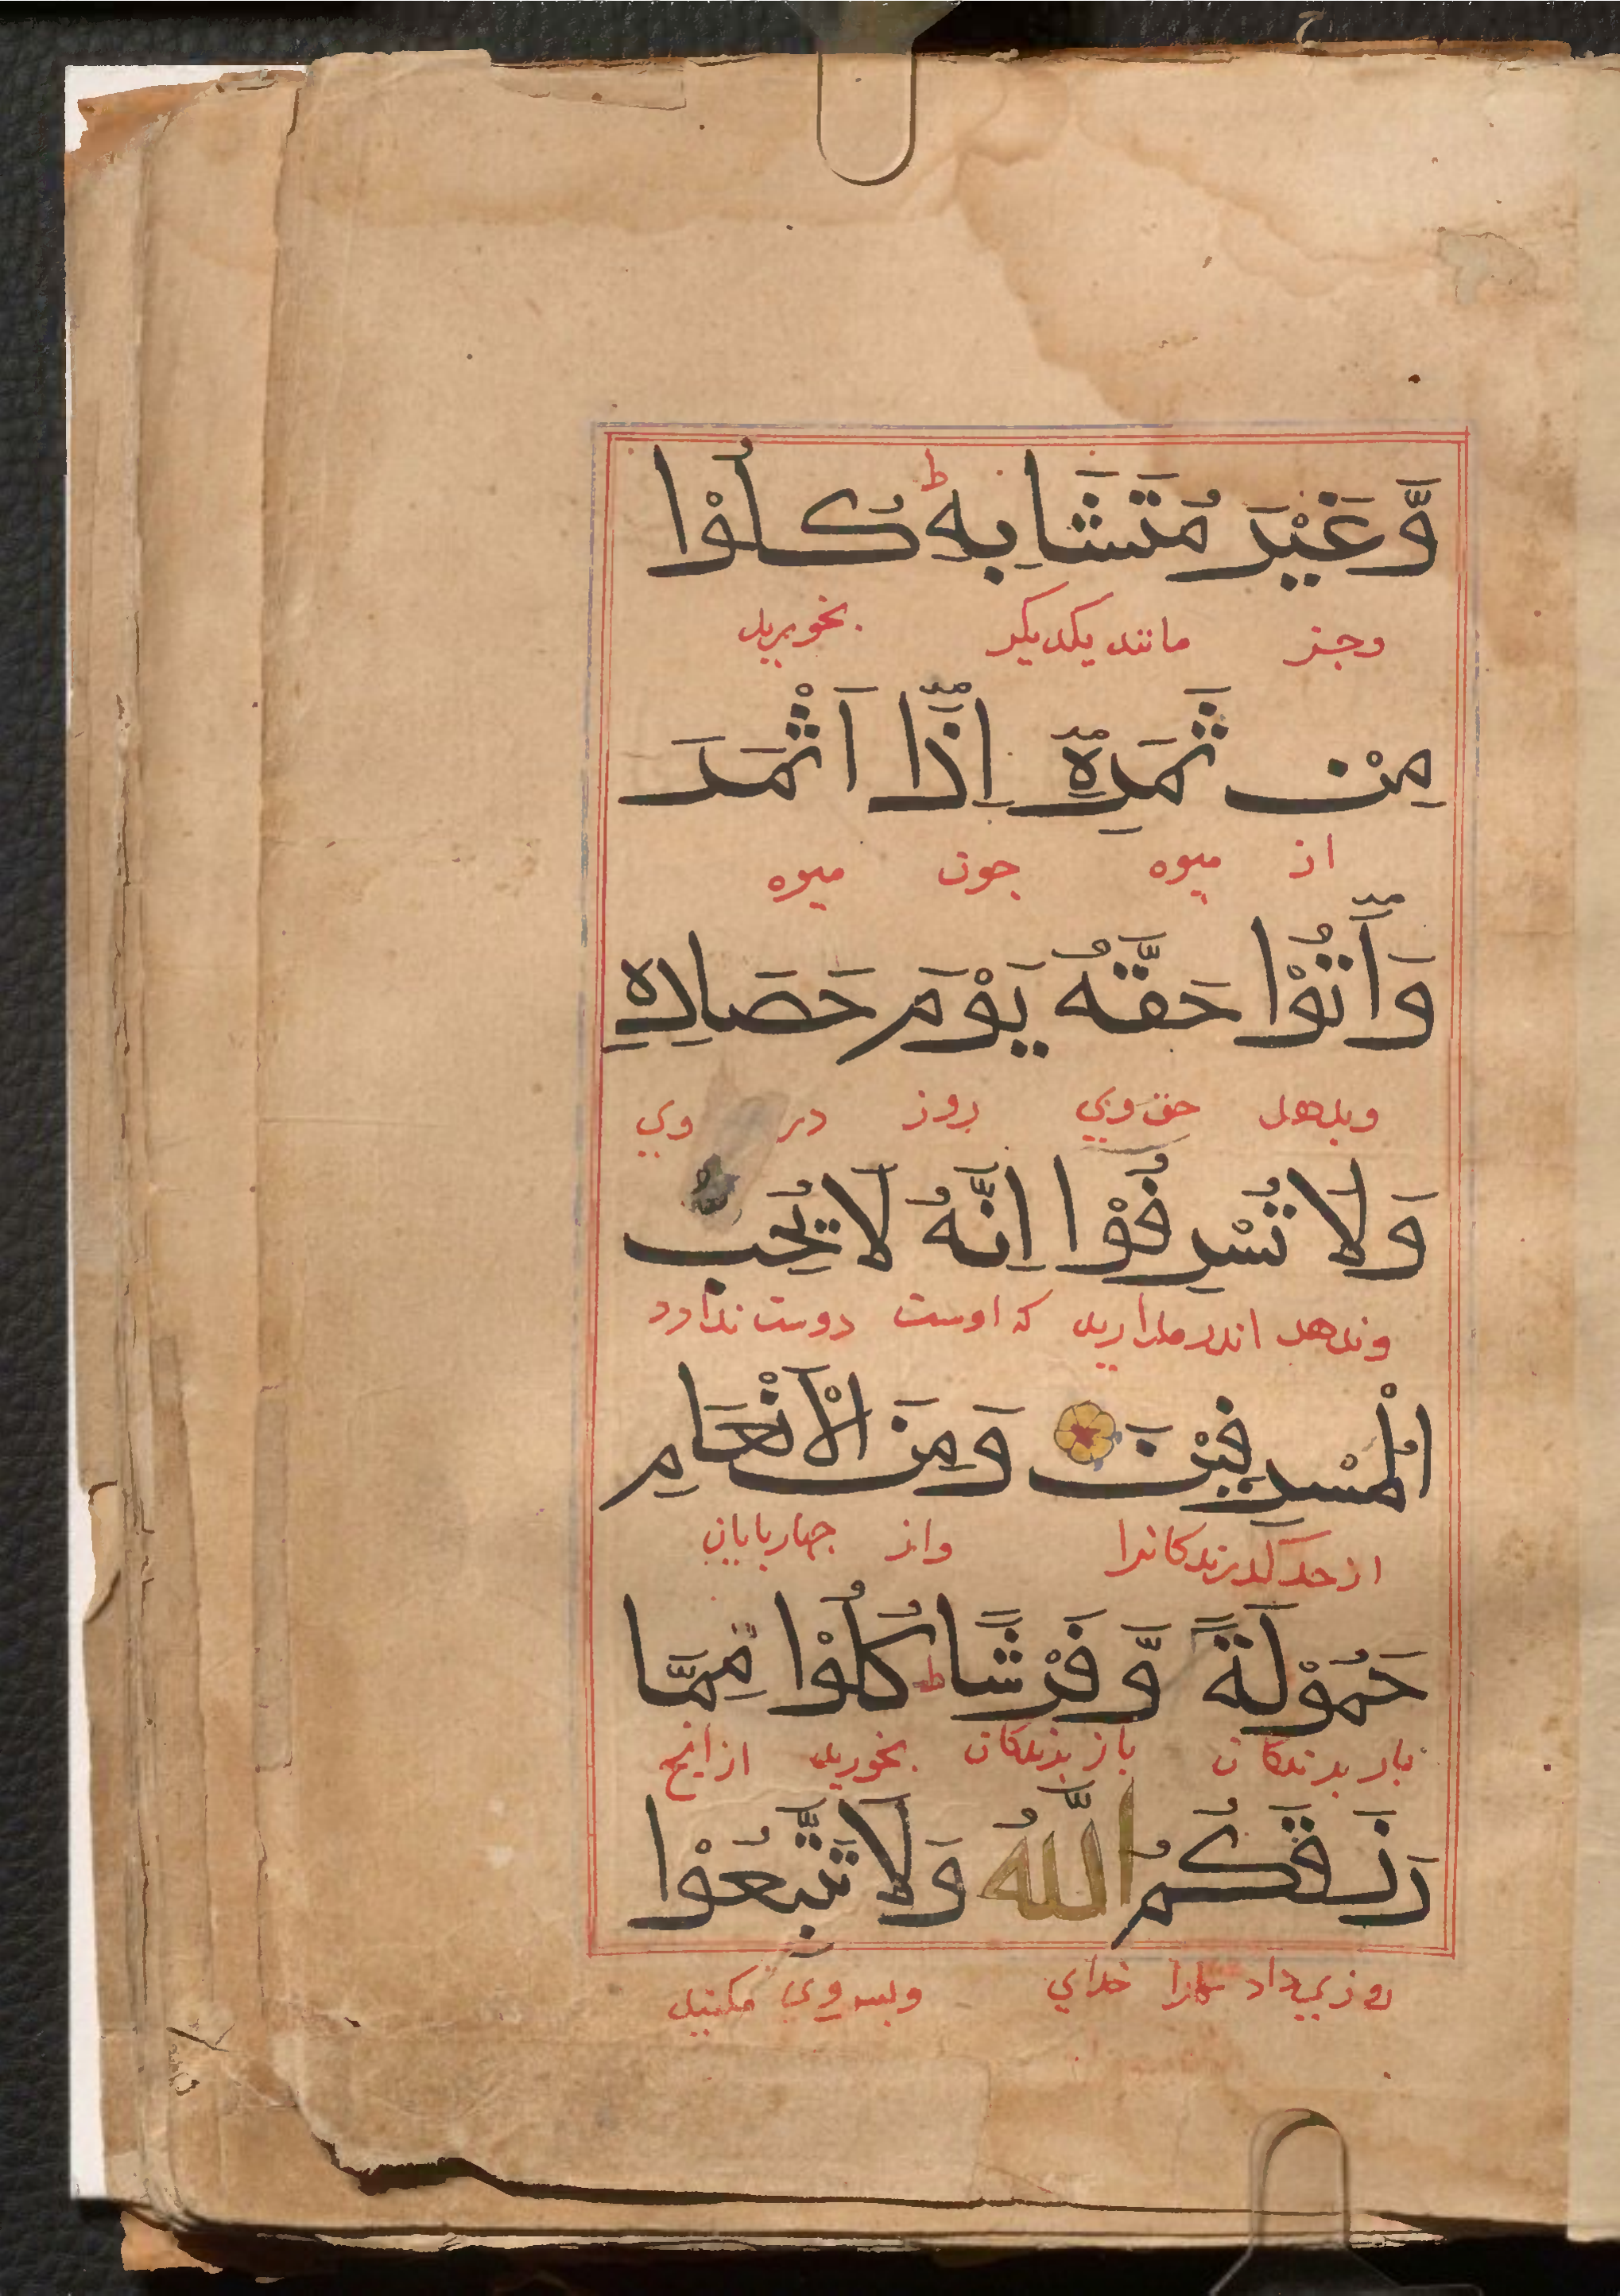 وَّغَيْرَ مُتَشَابِهٍ ط كُلُوْا
وجز مانند یکدیکر بخورید
مِنْ ثَمَرِهٖٓ اِذَآ اَثْمَرَ
از میوه جون میوه
وَاٰتُوْا حَقَّهٗ يَوْمَ حَصَادِهٖ
وبدهد حق وی روز در وی
وَلَا تُسْرِفُوْا اِنَّهٗ لَا يُحِبُّ
وندهد اندر مدارید که اوست دوست ندارد
الْمُسْرِفِيْنَ وَمِنَ الْاَنْعَامِ
از حد کدرندکانرا واز جهاربایان
حَمُوْلَةً وَّفَرْشًا ط كُلُوْا مِمَّا
بار برندکان بخورید ازانج
رَزَقَكُمُ اللّٰهُ وَلَا تَتَّبِعُوْا
روزی داد شمارا خدای وبس وی مکنید